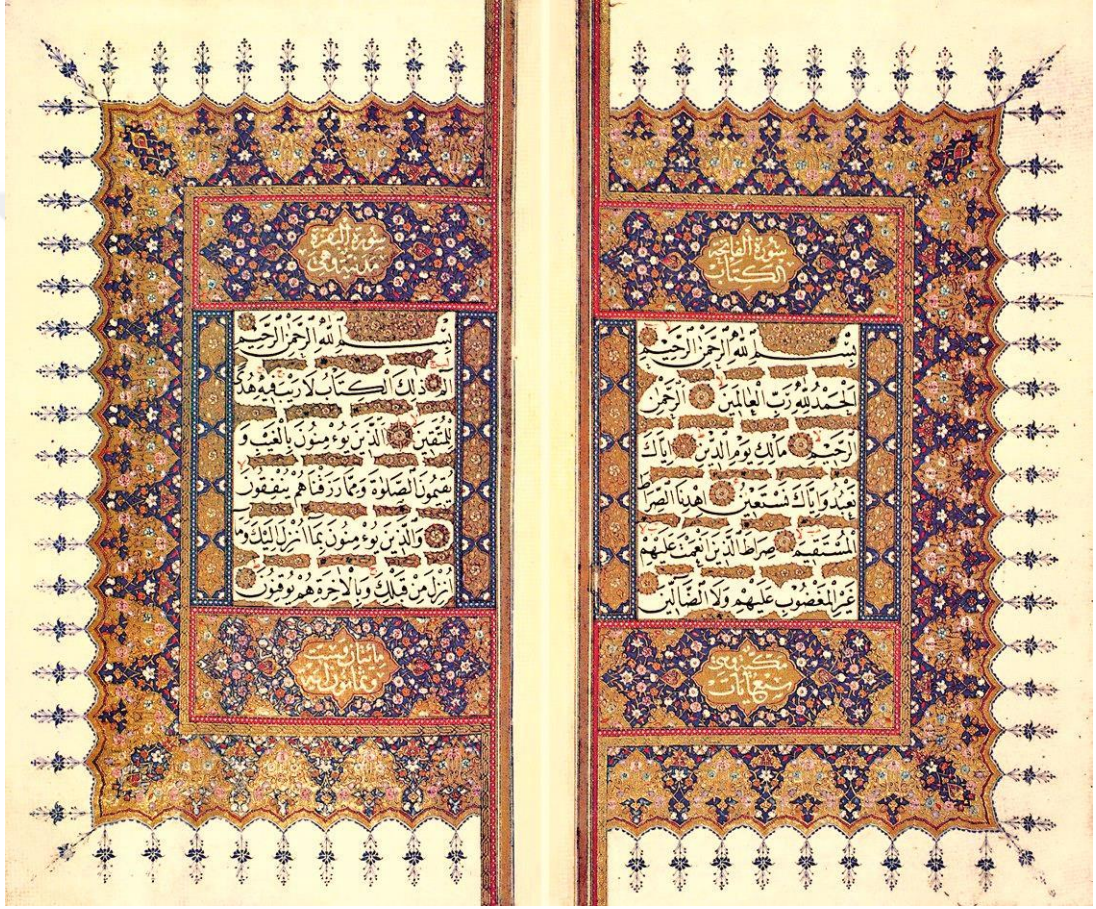 سُورَةُ الْفَاتِحَةِ
الْكِتَابِ
بِسْمِ اللّٰهِ الرَّحْمٰنِ الرَّحِيمِ
اَلْحَمْدُ لِلّٰهِ رَبِّ الْعَالَمِينَ الرَّحْمٰنِ
الرَّحِيمِ مَالِكِ يَوْمِ الدِّينِ اِيَّاكَ
نَعْبُدُ وَاِيَّاكَ نَسْتَعِينُ اِهْدِنَا الصِّرَاطَ
الْمُسْتَقِيمَ صِرَاطَ الَّذِينَ اَنْعَمْتَ عَلَيْهِمْ
غَيْرِ الْمَغْضُوبِ عَلَيْهِمْ وَلَا الضَّالِّينَ
مكية وهى
سبع ايات
سُورَةُ الْبَقَرَةِ
مدنية وهى
بِسْمِ اللّٰهِ الرَّحْمٰنِ الرَّحِيمِ
الم ذٰلِكَ الْكِتَابُ لَا رَيْبَ فِيهِ هُدًى
لِلْمُتَّقِينَ اَلَّذِينَ يُوءْمِنُونَ بِالْغَيْبِ وَ
يُقِيمُونَ الصَّلٰوةَ وَمِمَّا رَزَقْنَاهُمْ يُنْفِقُونَ
وَالَّذِينَ يُوءْمِنُونَ بِمَا اُنْزِلَ اِلَيْكَ وَمَا
اُنْزِلَ مِنْ قَبْلِكَ وَبِالْاٰخِرَةِ هُمْ يُوقِنُونَ
مائتان وست
وثمانون اية